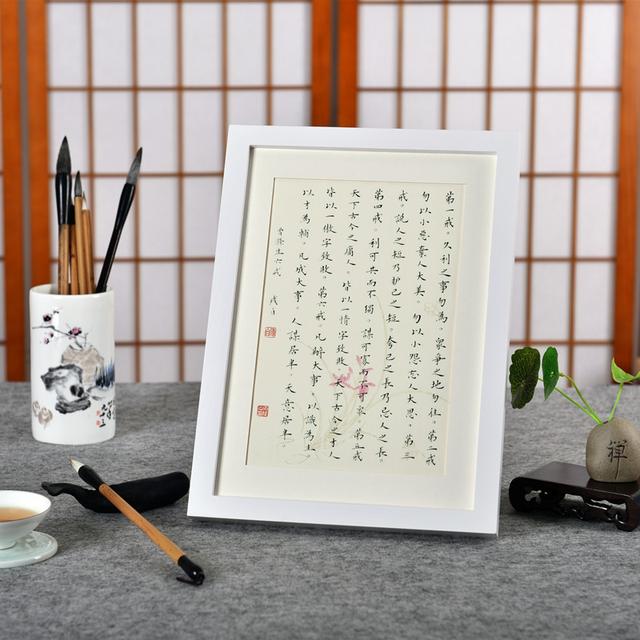 第一戒。久利之事勿為。眾爭之地勿往。第二戒
勿以小惡棄人大美。勿以小怨忘人大恩。第三
戒。說人之短乃护己之短。夸己之長乃忌人之長。
第四戒。利可共而不獨。謀可寡而不可眾。第五戒
天下古今之庸人。皆以一惰字致敗。天下古今之才人
皆以一傲字致敗。第六戒。凡辦大事。以識為主。
以才為輔。凡成大事。人謀居半。天意居半。
曾滌生六戒
禪